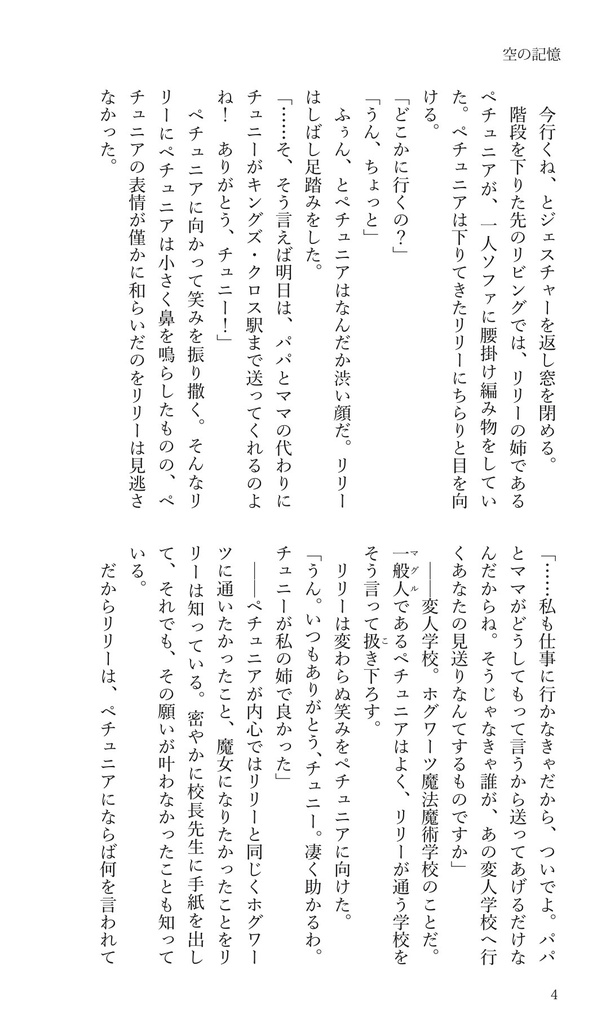 空の記憶
　今行くね、とジェスチャーを返し窓を閉める。
　階段を下りた先のリビングでは、リリーの姉である
ペチュニアが、一人ソファに腰掛け編み物をしてい
た。ペチュニアは下りてきたリリーにちらりと目を向
ける。
「どこかに行くの？」
「うん、ちょっと」
　ふぅん、とペチュニアはなんだか渋い顔だ。リリー
はしばし足踏みをした。
「……そ、そう言えば明日は、パパとママの代わりに
チュニーがキングズ・クロス駅まで送ってくれるのよ
ね！　ありがとう、チュニー！」
　ペチュニアに向かって笑みを振り撒く。そんなリ
リーにペチュニアは小さく鼻を鳴らしたものの、ペ
チュニアの表情が僅かに和らいだのをリリーは見逃さ
なかった。
「……私も仕事に行かなきゃだから、ついでよ。パパ
とママがどうしてもって言うから送ってあげるだけな
んだからね。そうじゃなきゃ誰が、あの変人学校へ行
くあなたの見送りなんてするものですか」
　――変人学校。ホグワーツ魔法魔術学校のことだ。
一般人であるペチュニアはよく、リリーが通う学校を
マグル
そう言って扱き下ろす。
こ
　リリーは変わらぬ笑みをペチュニアに向けた。
「うん。いつもありがとう、チュニー。凄く助かるわ。
チュニーが私の姉で良かった」
　――ペチュニアが内心ではリリーと同じくホグワー
ツに通いたかったこと、魔女になりたかったことをリ
リーは知っている。密やかに校長先生に手紙を出し
て、それでも、その願いが叶わなかったことも知って
いる。
　だからリリーは、ペチュニアにならば何を言われて
4